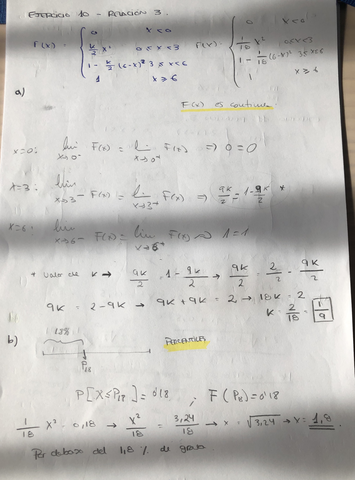 EJERCICIO 10 - RELACIÓN 3.
F(x) = { 0 x<0
k/2 x² 0≤x<3
1 - k/2 (6-x)² 3≤x<6
1 x≥6
F(x) = { 0 x<0
1/18 x² 0≤x<3
1 - 1/18 (6-x)² 3≤x<6
1 x≥6
a)
F(x) es continua
x=0: lim x→0⁻ F(x) = lim x→0⁺ F(x) ⇒ 0=0
x=3: lim x→3⁻ F(x) = lim x→3⁺ F(x) ⇒ 9k/2 = 1-9k/2 *
x=6: lim x→6⁻ F(x) = lim x→6⁺ F(x) 1=1
* Valor de k → 9k/2 = 1 - 9k/2 → 9k/2 = 2/2 - 9k/2
9k = 2-9k → 9k+9k = 2 → 18k = 2
k = 2/18 = 1/9
b)
PERCENTILES
P₁₈
P[X≤P₁₈] = 0'18 ; F(P₁₈) = 0'18
1/18 x² = 0,18 → x²/18 = 3,24/18 → x = √3,24 → x = 1,8
Por debajo del 1,8 % de grasa